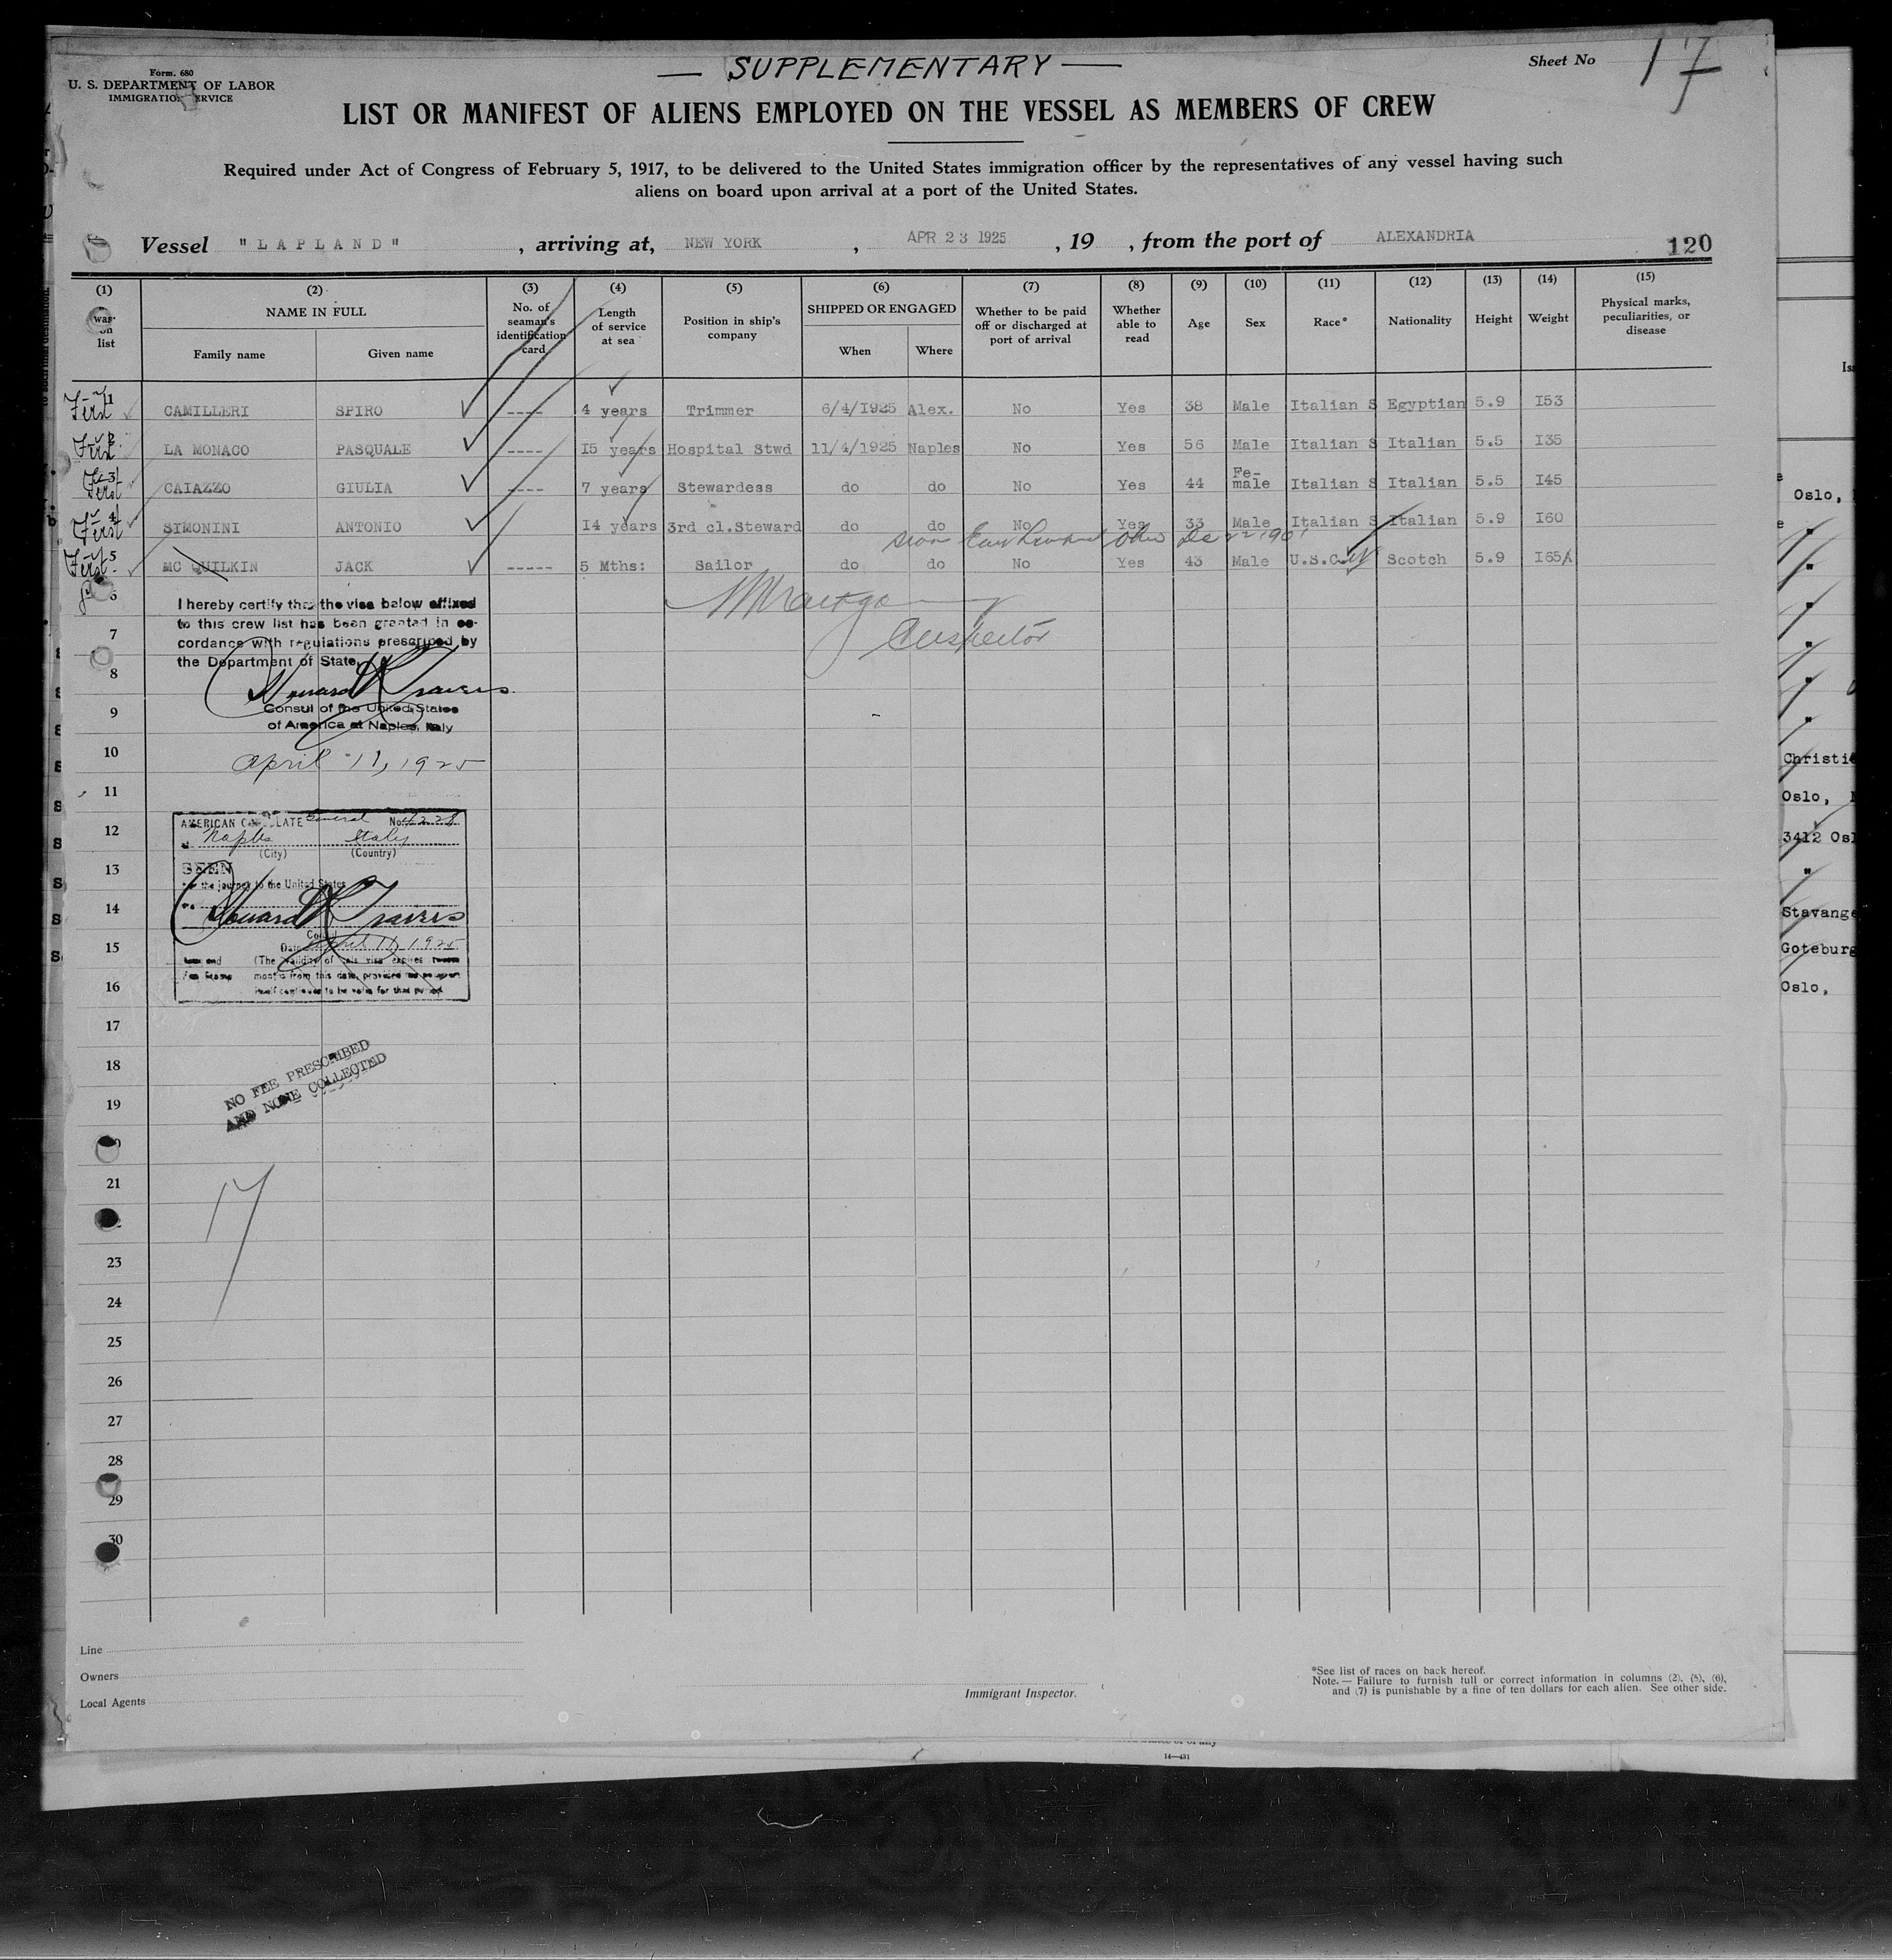 — SUPPLEMENTARY —
Sheet No 17
Form. 680
U. S. DEPARTMENT OF LABOR
IMMIGRATION SERVICE
LIST OR MANIFEST OF ALIENS EMPLOYED ON THE VESSEL AS MEMBERS OF CREW
Required under Act of Congress of February 5, 1917, to be delivered to the United States immigration officer by the representatives of any vessel having such
aliens on board upon arrival at a port of the United States.
Vessel "LAPLAND" , arriving at, NEW YORK , APR 23 1925 , 19 , from the port of ALEXANDRIA 120
(1) (2) (3) (4) (5) (6) (7) (8) (9) (10) (11) (12) (13) (14) (15)
on list NAME IN FULL Family name Given name No. of seaman's identification card Length of service at sea Position in ship's company SHIPPED OR ENGAGED When Where Whether to be paid off or discharged at port of arrival Whether able to read Age Sex Race* Nationality Height Weight Physical marks, peculiarities, or disease
First 1 CAMILLERI SPIRO ---- 4 years Trimmer 6/4/1925 Alex. No Yes 38 Male Italian S Egyptian 5.9 I53
First 2 LA MONACO PASQUALE ---- I5 years Hospital Stwd 11/4/1925 Naples No Yes 56 Male Italian S Italian 5.5 I35
First 3 CAIAZZO GIULIA ---- 7 years Stewardess do do No Yes 44 Fe-male Italian S Italian 5.5 I45
First 4 SIMONINI ANTONIO I4 years 3rd cl.Steward do do No Yes 33 Male Italian S Italian 5.9 I60
First 5 MC QUILKIN JACK ----- 5 Mths: Sailor do do No Yes 43 Male U.S.C. Scotch 5.9 I65
6
I hereby certify that the visa below affixed
to this crew list has been granted in ac-
cordance with regulations prescribed by
the Department of State.
Inspector
7
8
Howard K Travers
Consul of the United States
of America at Naples, Italy
9
10
April 11, 1925
11
12
AMERICAN CONSULATE General No.
Naples Italy
(City) (Country)
13
SEEN
the journey to the United States
14
Howard K Travers
Consul
15
Date April 11, 1925
(The validity of this visa expires twelve
months from this date, provided the passport
itself continues to be valid for that period
16
17
18
NO FEE PRESCRIBED
AND NONE COLLECTED
19
21
17
23
24
25
26
27
28
29
30
Line
Owners
Local Agents
Immigrant Inspector.
*See list of races on back hereof.
Note. — Failure to furnish full or correct information in columns (2), (5), (6),
and (7) is punishable by a fine of ten dollars for each alien. See other side.
14—431
Oslo,
Oslo,
3412 Osl
Stavange
Goteburg
Oslo,